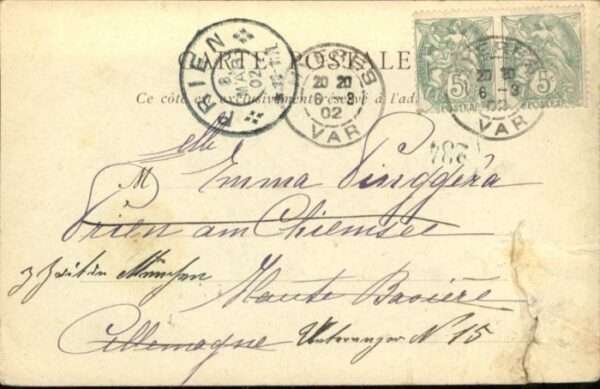 CARTE POSTALE
Ce côté est exclusivement réservé à l'ad
PRIEN
8 MAR 02
HYÈRES
20 20
6 -3
02
VAR
HYÈRES
20 20
6 -3
02
VAR
5c
5c
234
Mlle
Emma Pinggéra
Prien am Chiemsee
z Zeit in München
Haute Bavière
Allemagne Unteranger N 15